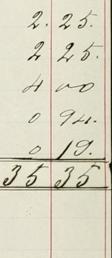 2. 25.
2 25.
4 00
0 94.
0 19.
35 35